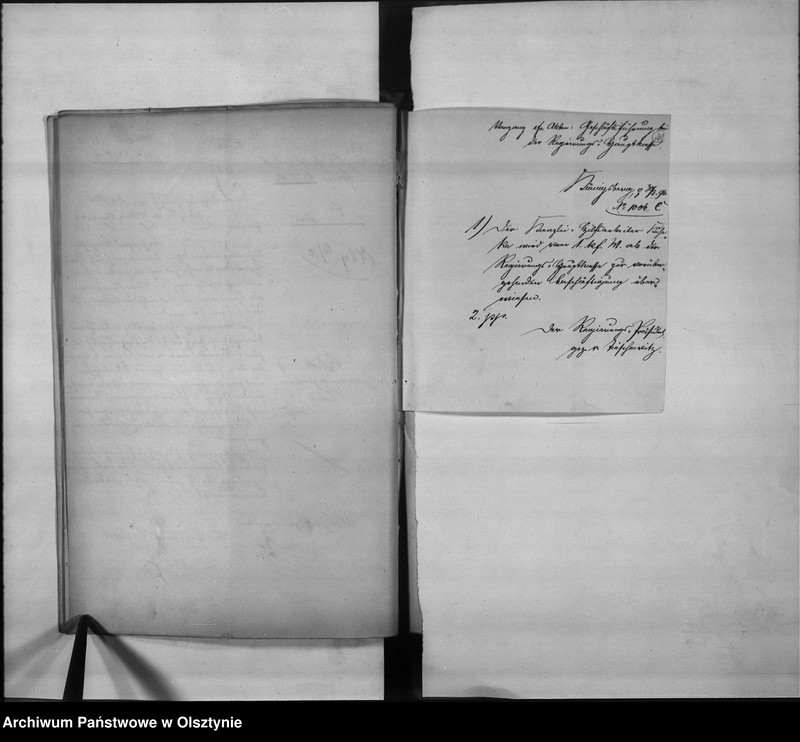 Vorgang sfn. Akten: Geschäftsführung bei
der Regierungs-Hauptkasse.
Königsberg, d.
No 1006 C
1) Der Kanzlei-Hülfsarbeiter
wird vom 1. kf. M. ab der
Regierungs-Hauptkasse zur vorüber-
gehenden Beschäftigung über-
wiesen.
2. pp.
Der Regierungs-Präsident,
gez. v Tieschowitz.
Archiwum Państwowe w Olsztynie